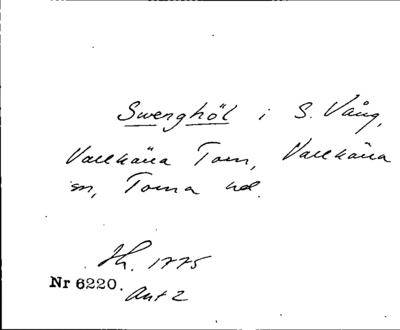 Swenghöl i S. Vång,
Vallkärra Torn, Vallkärra
sn, Torna hd.
Th. 1775
Nr 6220.
Akt 2